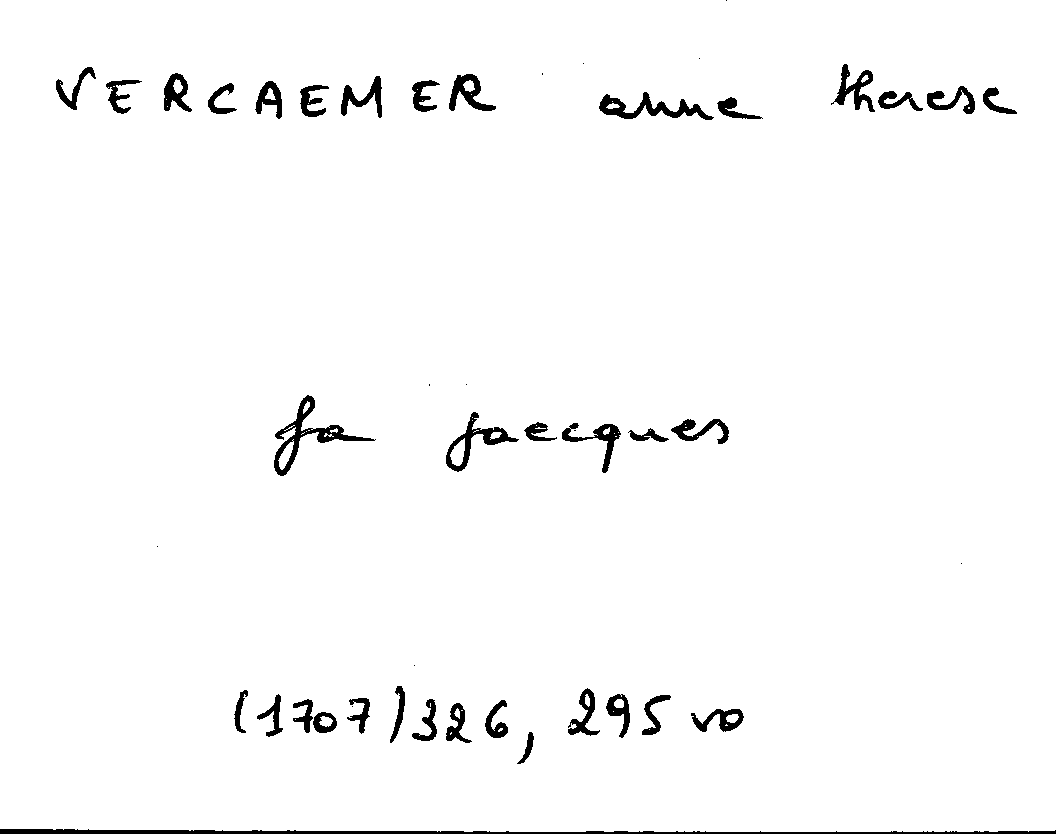 VERCAEMER anne therese
fa jaecques
(1707) 326, 295 vo